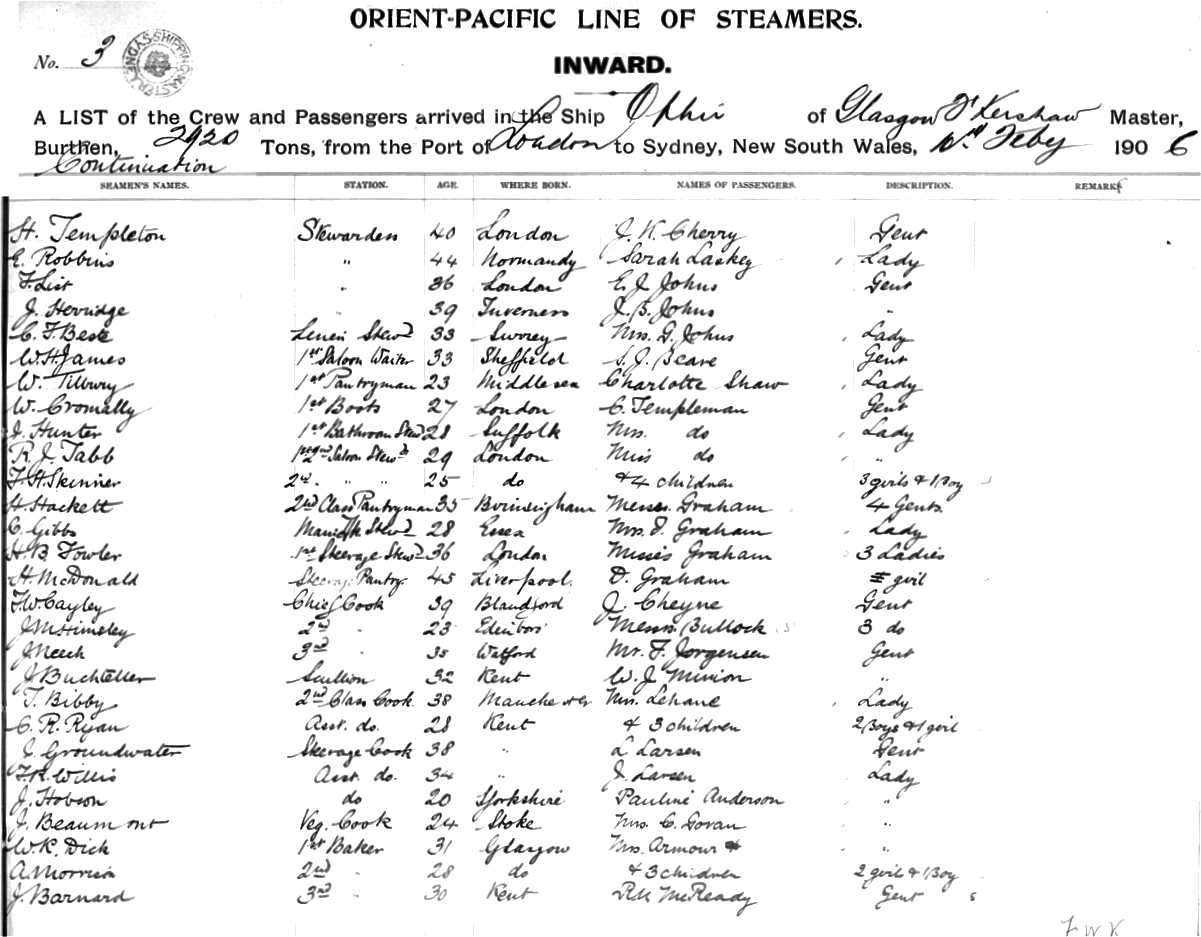 ORIENT-PACIFIC LINE OF STEAMERS.
No. 3
INWARD.
A LIST of the Crew and Passengers arrived in the Ship Ophir of Glasgow Kershaw Master,
Burthen, 2920 Tons, from the Port of London to Sydney, New South Wales, Feby 1906
Continuation
SEAMEN'S NAMES. STATION. AGE. WHERE BORN. NAMES OF PASSENGERS. DESCRIPTION. REMARKS
H. Templeton Stewardess 40 London J. K. Cherry Gent
E. Robbins " 44 Normandy Sarah Laskey Lady
F. List " 36 London E. J. Johns Gent
J. Herridge " 39 Inverness J. B. Johns "
C. F. Best Linen Stewd 33 Surrey Mrs. G. Johns Lady
W. H. James 1st Saloon Waiter 33 Sheffield S. J. Beare Gent
W. Tilbury 1st Pantryman 23 Middlesex Charlotte Shaw Lady
W. Cromally 1st Boots 27 London C. Templeman Gent
J. Hunter 1st Bathroom Stewd 28 Suffolk Mrs. do Lady
R. J. Tabb 2nd Saloon Stewd 29 London Miss do "
F. H. Skinner 2nd " " 25 do & 4 children 3 girls & 1 Boy
H. Hackett 2nd Class Pantryman 35 Birmingham Messrs. Graham 4 Gents.
C. Gibbs Stewd 28 Essex Mrs. J. Graham Lady
H. B. Fowler 1st Steerage Stewd 36 London Misses Graham 3 Ladies
H. McDonald Steerage Pantry. 45 Liverpool. D. Graham girl
F. W. Cayley Chief Cook 39 Blandford J. Cheyne Gent
J. M. Himsley 2nd " 23 Edinboro' Messrs. Bullock 3 do
J. Meech 3rd " 35 Watford Mr. F. Jorgensen Gent
J. Buchteller Scullion 32 Kent W. J. Minion "
T. Bibby 2nd Class Cook 38 Manchester Mrs. Lehane Lady
C. R. Ryan Asst. do. 28 Kent & 3 children 2 Boys & 1 girl
J. Groundwater Steerage Cook 38 " L Larsen Gent
F. R. Willis Asst. do. 34 " J. Larsen Lady
J. Hobson do 20 Yorkshire Pauline Anderson "
J. Beaumont Veg. Cook 24 Stoke Mrs. C. Govan "
W. R. Dick 1st Baker 31 Glasgow Mrs. Armour "
A. Morrison 2nd " 28 do & 3 children 2 girl & 1 Boy
J. Barnard 3rd " 30 Kent R. M. McReady Gent